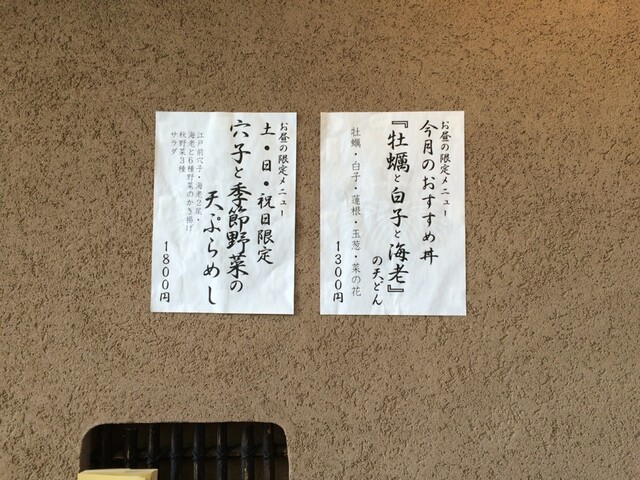 お昼の限定メニュー
今月のおすすめ丼
『牡蠣と白子と海老』
の天どん
牡蠣・白子・蓮根・玉葱・菜の花
1300円
お昼の限定メニュー
土・日・祝日限定
穴子と季節野菜の
天ぷらめし
江戸前穴子・海老2尾・
海老と6種野菜のかき揚げ
秋野菜3種
サラダ
1800円